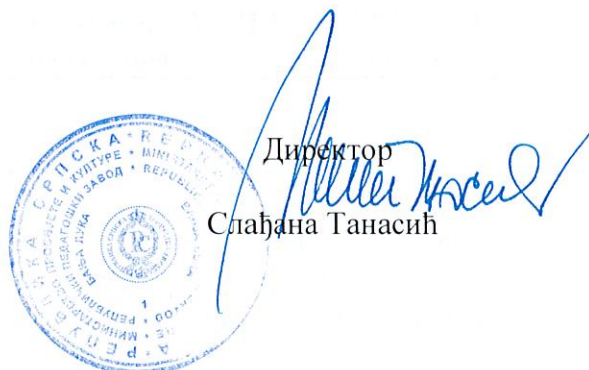 Директор
Слађана Танасић
РЕПУБЛИКА СРПСКА • REPU
МИНИСТАРСТВО ПРОСВЈЕТЕ И КУЛТУРЕ • MINIST
РЕПУБЛИЧКИ ПЕДАГОШКИ ЗАВОД • REPUBLI
БАЊА ЛУКА
1